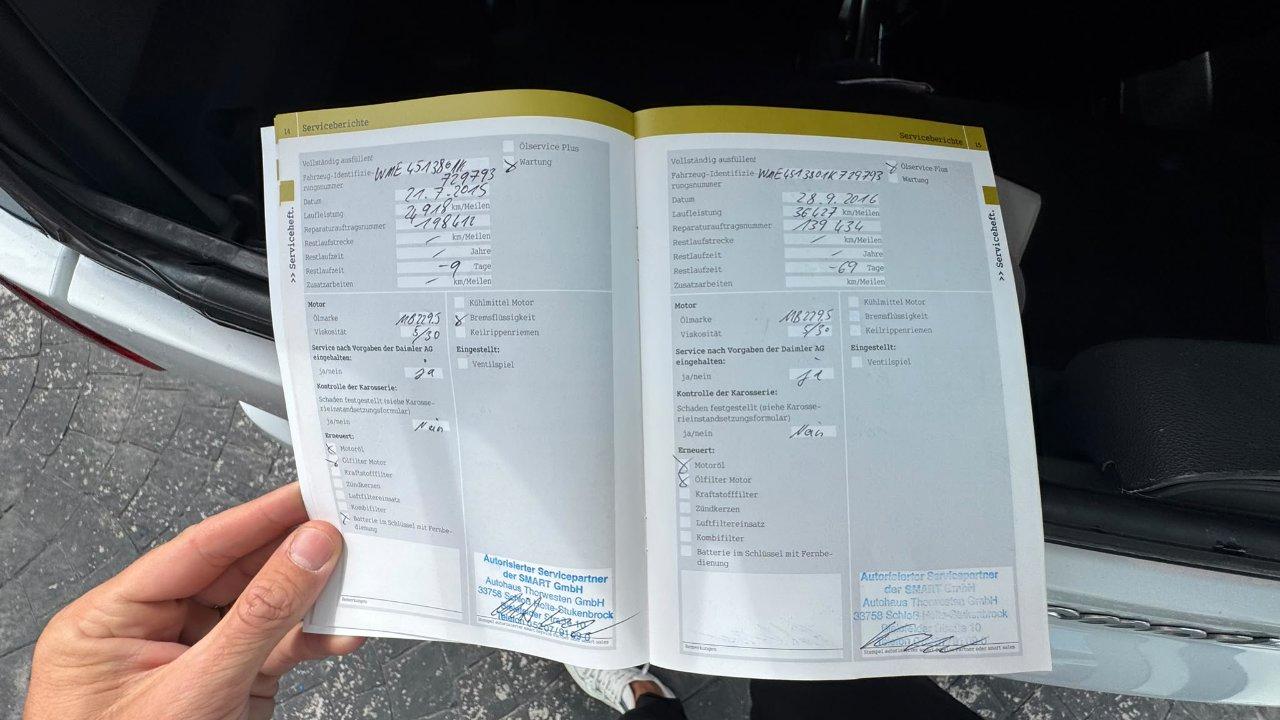 14 Serviceberichte
Vollständig ausfüllen!
Ölservice Plus
Fahrzeug-Identifizie-
rungsnummer
Wartung
729793
Datum 21.7.2015
Laufleistung km/Meilen
Reparaturauftragsnummer
Restlaufstrecke / km/Meilen
Restlaufzeit / Jahre
Restlaufzeit -9 Tage
Zusatzarbeiten / km/Meilen
>> Serviceheft.
Motor
Ölmarke MB229.5
Viskosität 5/30
Service nach Vorgaben der Daimler AG
eingehalten:
ja/nein ja
Kontrolle der Karosserie:
Schaden festgestellt (siehe Karosse-
rieinstandsetzungsformular)
ja/nein Nein
Erneuert:
Motoröl
Ölfilter Motor
Kraftstofffilter
Zündkerzen
Luftfiltereinsatz
Kombifilter
Batterie im Schlüssel mit Fernbe-
dienung
Bemerkungen
Kühlmittel Motor
Bremsflüssigkeit
Keilrippenriemen
Eingestellt:
Ventilspiel
Autorisierter Servicepartner
der SMART GmbH
Autohaus Thorwesten GmbH
33758 Schloß Holte-Stukenbrock
Serviceberichte 15
Vollständig ausfüllen!
Ölservice Plus
Fahrzeug-Identifizie-
rungsnummer WME4513801K729793
Wartung
Datum 28.9.2016
Laufleistung 36427 km/Meilen
Reparaturauftragsnummer 139434
Restlaufstrecke / km/Meilen
Restlaufzeit / Jahre
Restlaufzeit -69 Tage
Zusatzarbeiten km/Meilen
>> Serviceheft.
Motor
Ölmarke MB229.5
Viskosität 5/30
Service nach Vorgaben der Daimler AG
eingehalten:
ja/nein ja
Kontrolle der Karosserie:
Schaden festgestellt (siehe Karosse-
rieinstandsetzungsformular)
ja/nein Nein
Erneuert:
Motoröl
Ölfilter Motor
Kraftstofffilter
Zündkerzen
Luftfiltereinsatz
Kombifilter
Batterie im Schlüssel mit Fernbe-
dienung
Bemerkungen
Kühlmittel Motor
Bremsflüssigkeit
Keilrippenriemen
Eingestellt:
Ventilspiel
Autorisierter Servicepartner
der SMART GmbH
Autohaus Thorwesten GmbH
33758 Schloß Holte-Stukenbrock